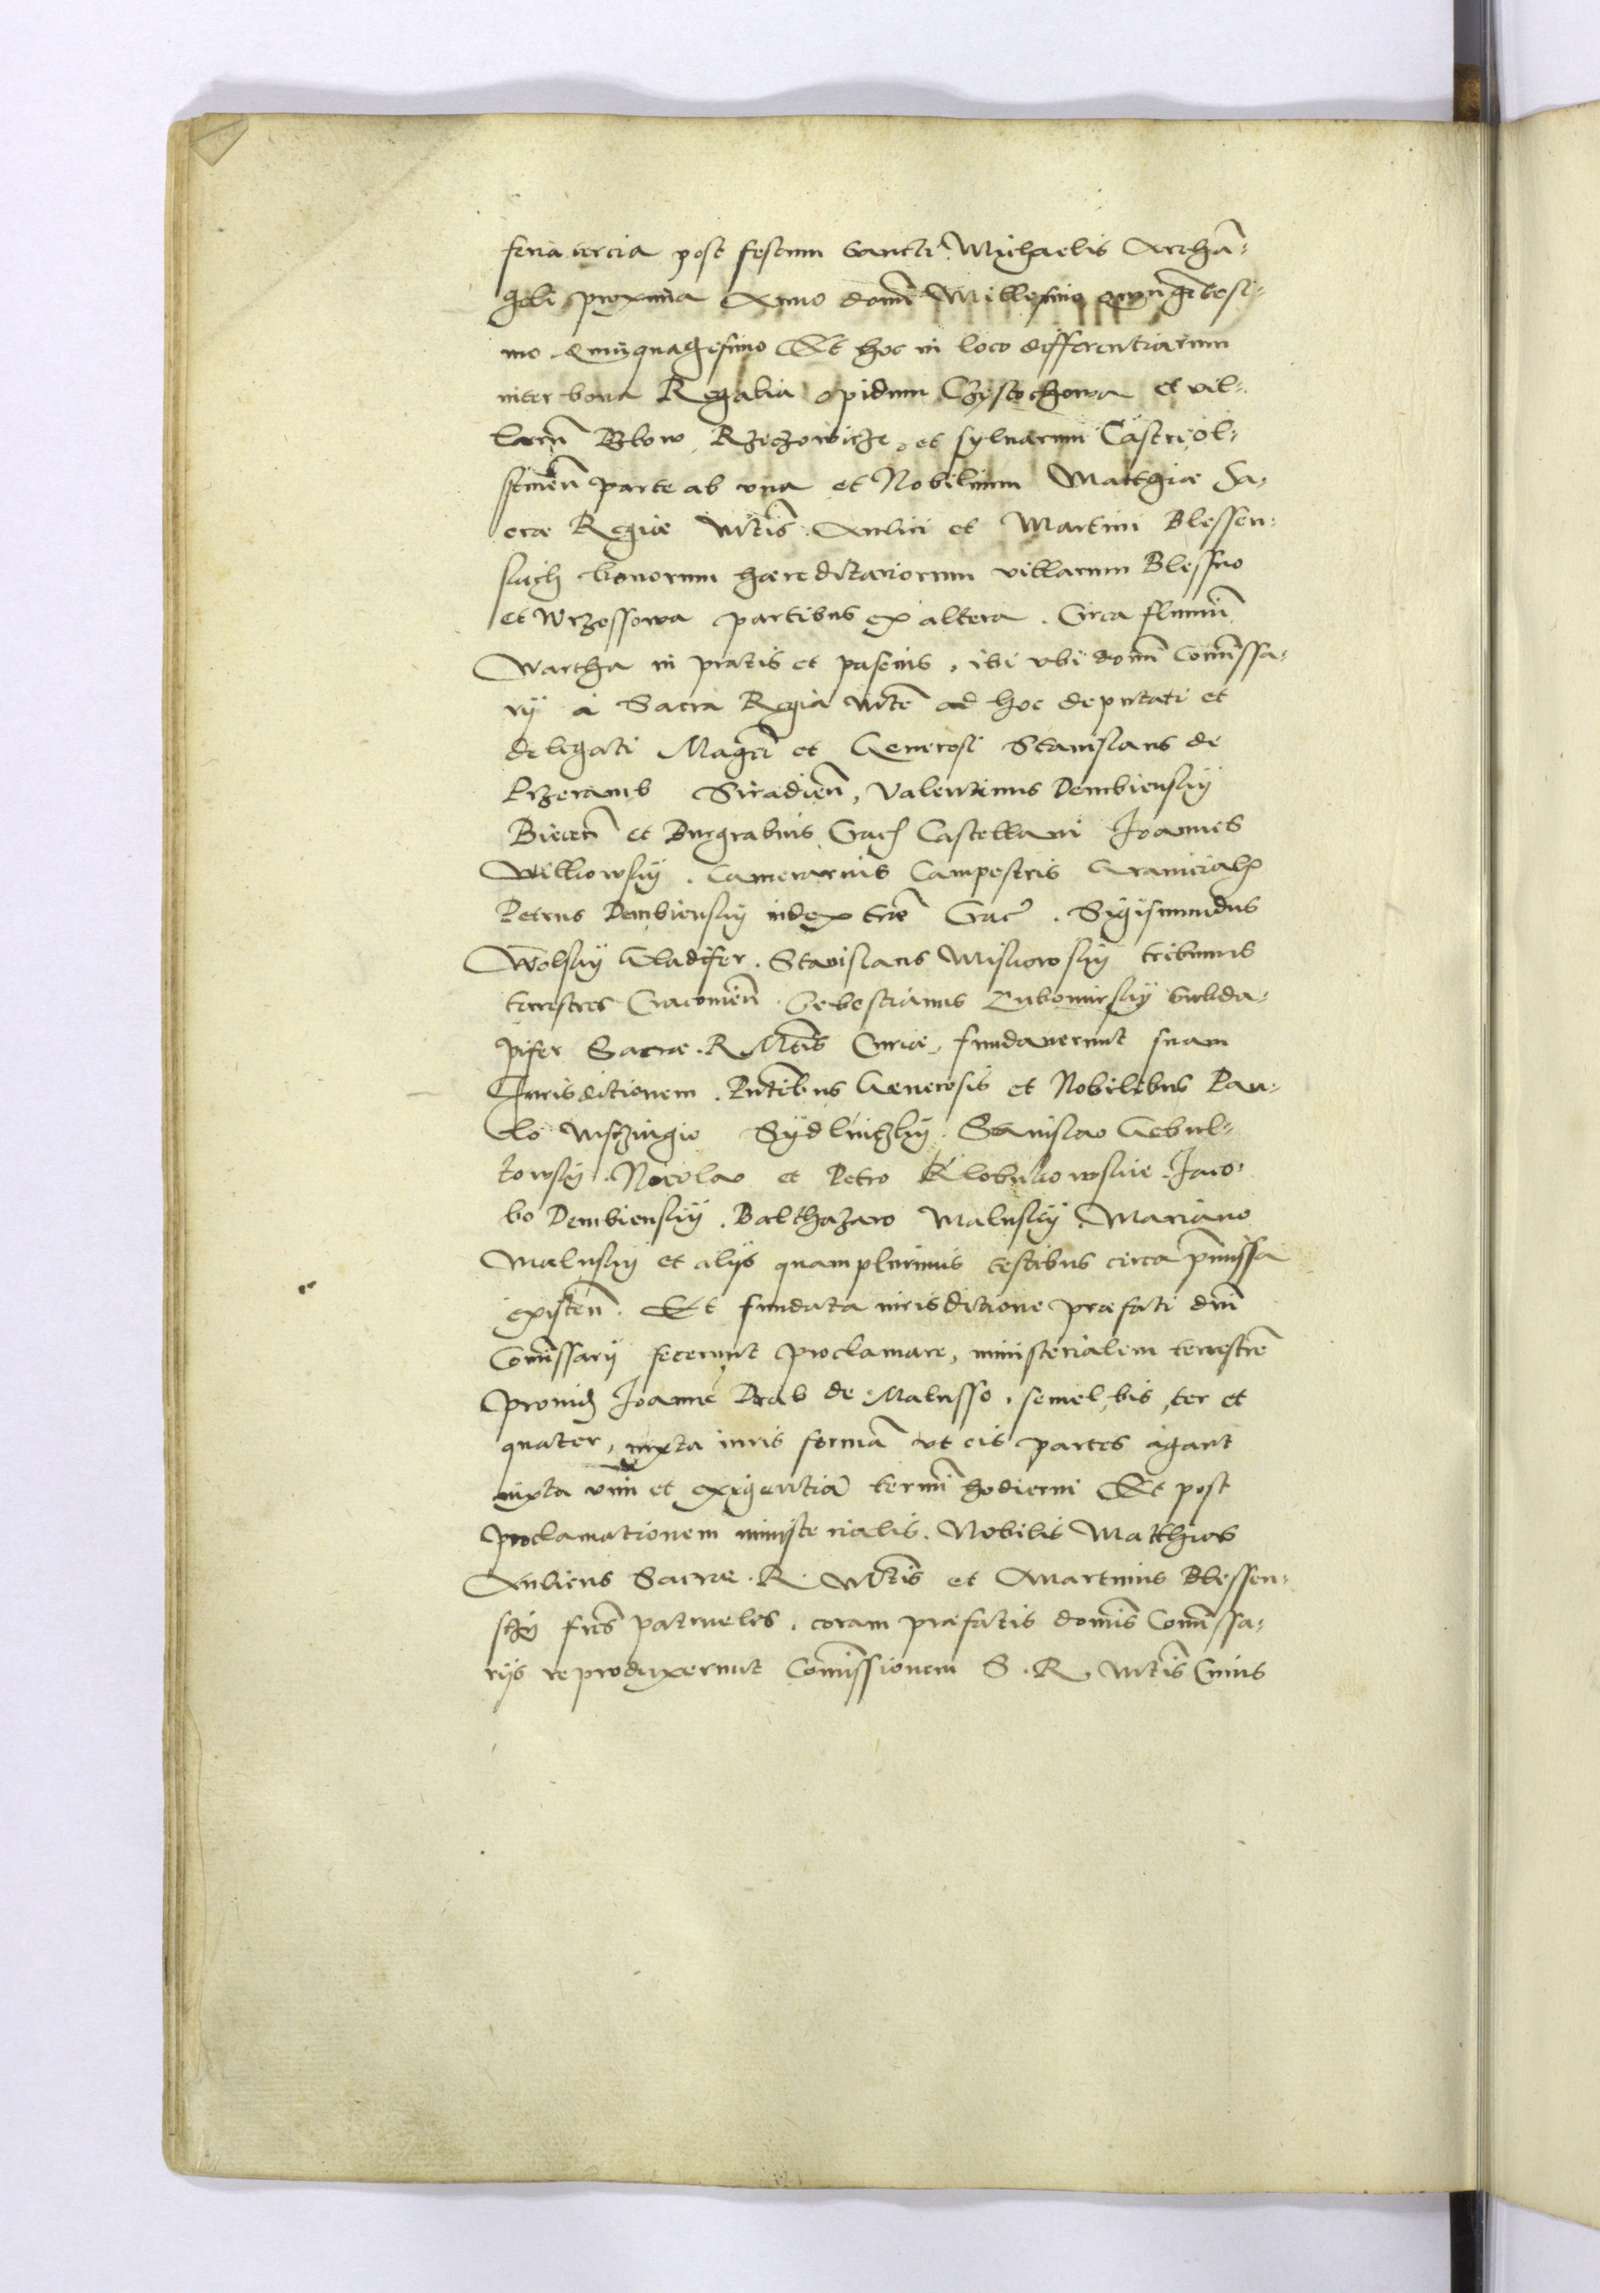 feria tercia post festum Sancti Michaelis Archā-
geli proxima Anno domī Millesimo qungētesi-
mo Quinquagesimo Et hoc in loco differentiarum
inter bona Regalia opidum Czÿstochowa et vil-
larū Blow, Rzezowicze, et sylvarum Castri ol-
stinēn parte ab una et Nobilium Matthiæ Sa-
cræ Regiæ Mtis Aulici et Martini Blessen-
skich bonorum hæreditariorum villarum Blessno
et Wrzossowa partibus ex altera. Circa fluviū
Wartha in pratis et pascuis, ibi ubi domī Comissa-
rÿ à Sacra Regia Mte ad hoc deputati et
delegati Magci et Generosi Stanislaus de
Przeramb Siradiēn, Valentinus Dembienskÿ
Biecen et Burgrabius Crac Castellani Joannes
Wilkowskÿ. Camerarius Campestris Granicial
Petrus Dembienskÿ iudex træ Crac. Sÿgismundus
Wolskÿ Gladifer. Stanislaus Miskowskÿ tribunus
terrestres Cracoviēn. Sebestianus Lubomirskÿ Subda-
pifer Sacræ. R. Mtis Curiæ, fundaverunt suam
Jurisditionem. Pntibus Generosis et Nobilibus Pau-
lo Sÿdlniczkÿ. Stanislao Gebul-
towskÿ. Nicolao et Petro Klobukowskie. Jaco-
bo Dembienskÿ. Balthazaro Maluskÿ Mariano
Maluskÿ et alÿs quamplurimis testibus circa pmissa
existen. Et fundata iurisditione præfati dni
Comissarÿ fecerunt proclamare, ministerialem terrestrē
provid Joannē Drab de Malusso, semel, bis, ter et
quater, iuxta iuris formā ut eis partes agant
iuxta vim et exigentiā termī hodierni Et post
proclamationem ministerialis. Nobilis Matthias
Aulicus Sacræ. R. Mtis et Martinus Blessen-
skÿ fres patrueles, coram præfatis domīs Comissa-
rÿs reproduxerunt Comissionem S. R. Mtis Cuius